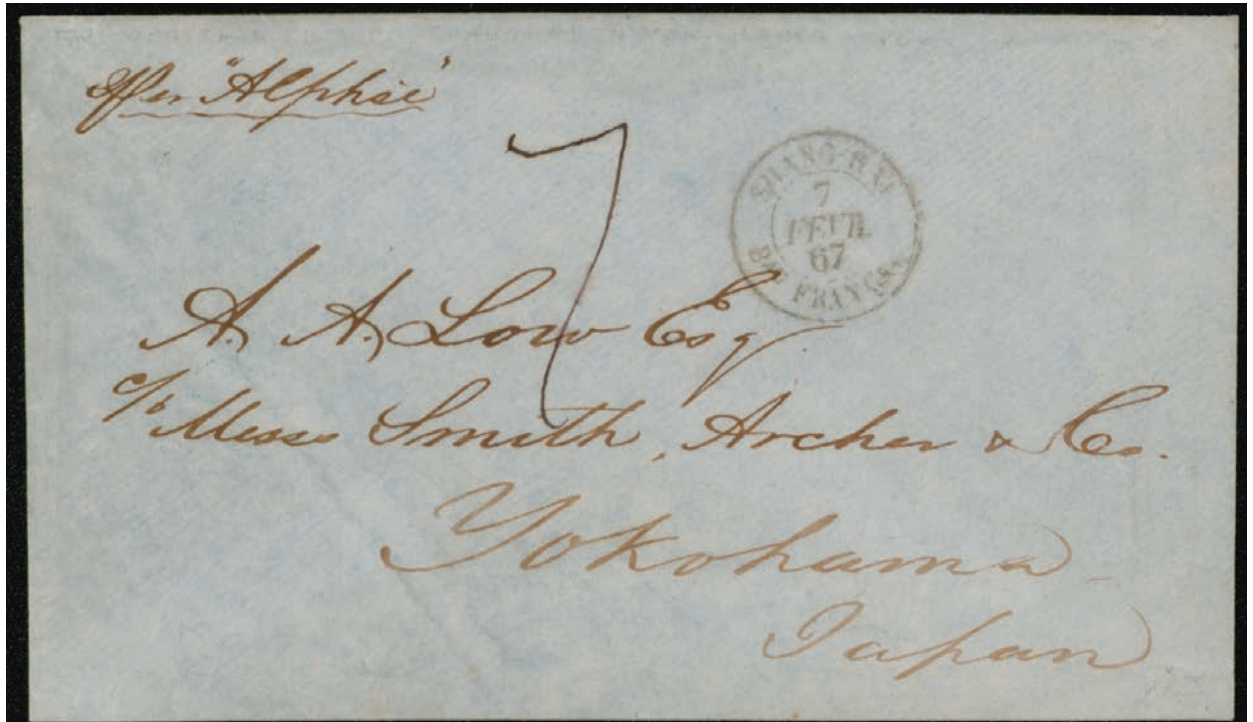 Per "Alphée"
7
SHANG-HAI
7
FEVR.
67
BAU FRANÇAIS
A. A. Low Esq
c/o Mess Smith, Archer & Co.
Yokohama
Japan